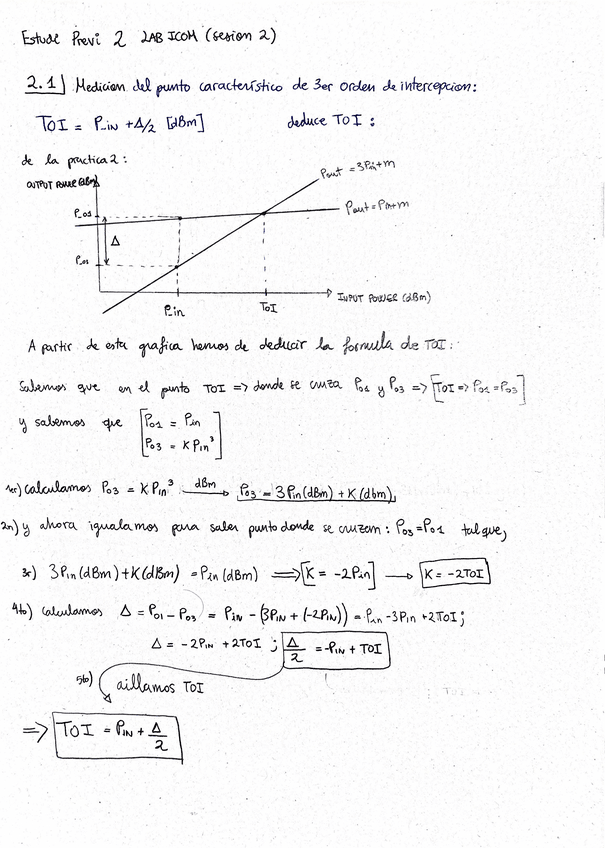 Estudi Previ 2 LAB ICOM (sesion 2)
2.1) Medicion del punto característico de 3er orden de intercepcion:
TOI = P_in + Δ/2 [dBm] deduce TOI :
de la practica 2:
OUTPUT POWER (dBm)
Pout = 3Pin+m
P_o1
Pout = Pin+m
Δ
P_o3
P_in
TOI
INPUT POWER (dBm)
A partir de esta grafica hemos de deducir la formula de TOI:
Sabemos que en el punto TOI => donde se cruza Po1 y Po3 => [TOI => Po1 = Po3]
y sabemos que [Po1 = Pin
Po3 = K Pin³]
1er) calculamos Po3 = K Pin³ dBm→ Po3 = 3Pin(dBm) + K(dbm),
2n) y ahora igualamos para saber punto donde se cruzan: Po3 = Po1 tal que,
3r) 3Pin(dBm)+K(dBm) = Pin(dBm) => [K = -2Pin] → K = -2TOI
4to) calculamos Δ = Po1 - Po3 = Pin - (3Pin + (-2Pin)) = Pin - 3Pin + 2TOI;
Δ = -2PIN + 2TOI ; Δ/2 = -PIN + TOI
5to) aillamos TOI
=> TOI = PIN + Δ/2